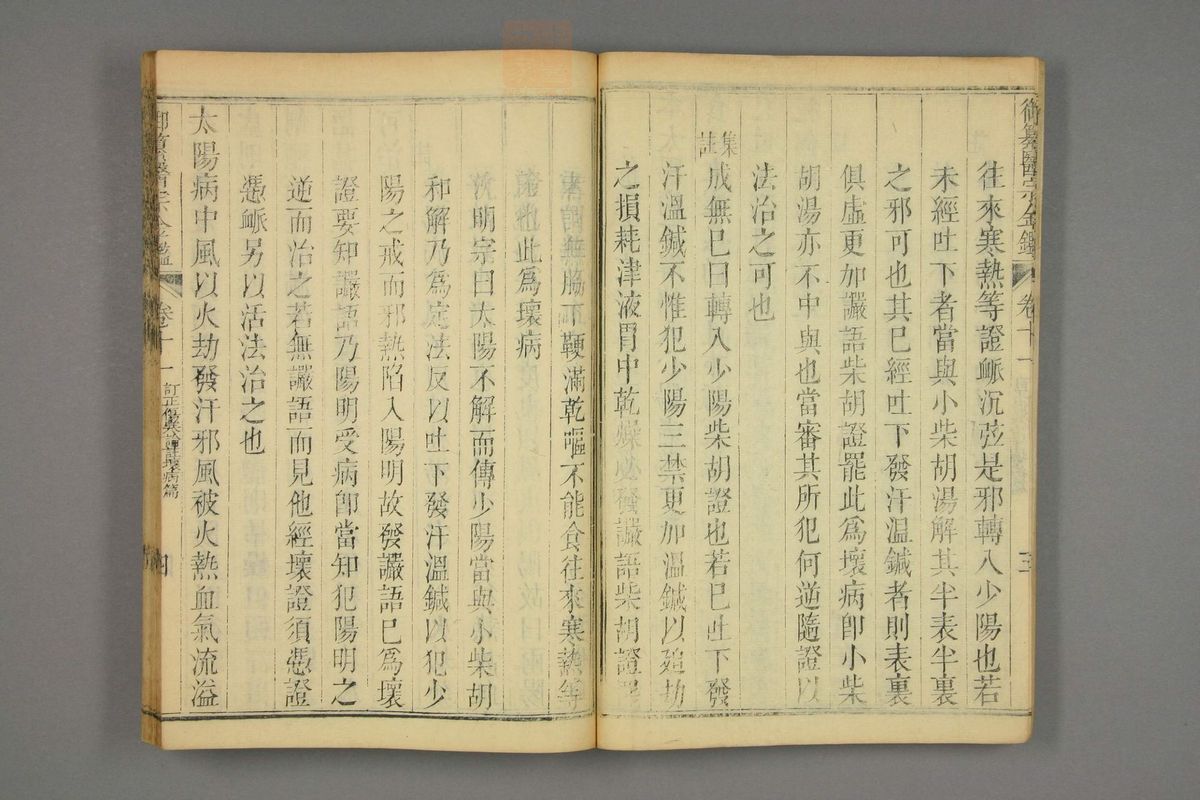 御纂醫宗金鑑 卷十一 三
往來寒熱等證脈沉弦是邪轉入少陽也若
未經吐下者當與小柴胡湯解其半表半裏
之邪可也其已經吐下發汗溫鍼者則表裏
俱虛更加讝語柴胡證罷此為壞病卽小柴
胡湯亦不中與也當審其所犯何逆隨證以
法治之可也
集註
成無已曰轉入少陽柴胡證也若已吐下發
汗溫鍼不惟犯少陽三禁更加溫鍼以廹劫
之損耗津液胃中乾燥必發讝語柴胡證罷
脇下鞕滿乾嘔不能食往來寒熱等
此為壞病
明宗曰太陽不解而傳少陽當與小柴胡
和解乃為定法反以吐下發汗溫鍼以犯少
陽之戒而邪熱陷入陽明故發讝語已為壞
證要知讝語乃陽明受病卽當知犯陽明之
逆而治之若無讝語而見他經壞證須憑證
憑脈另以活法治之也
太陽病中風以火劫發汗邪風被火熱血氣流溢
御纂醫宗金鑑 卷十一 訂正傷寒論註壞病篇 四